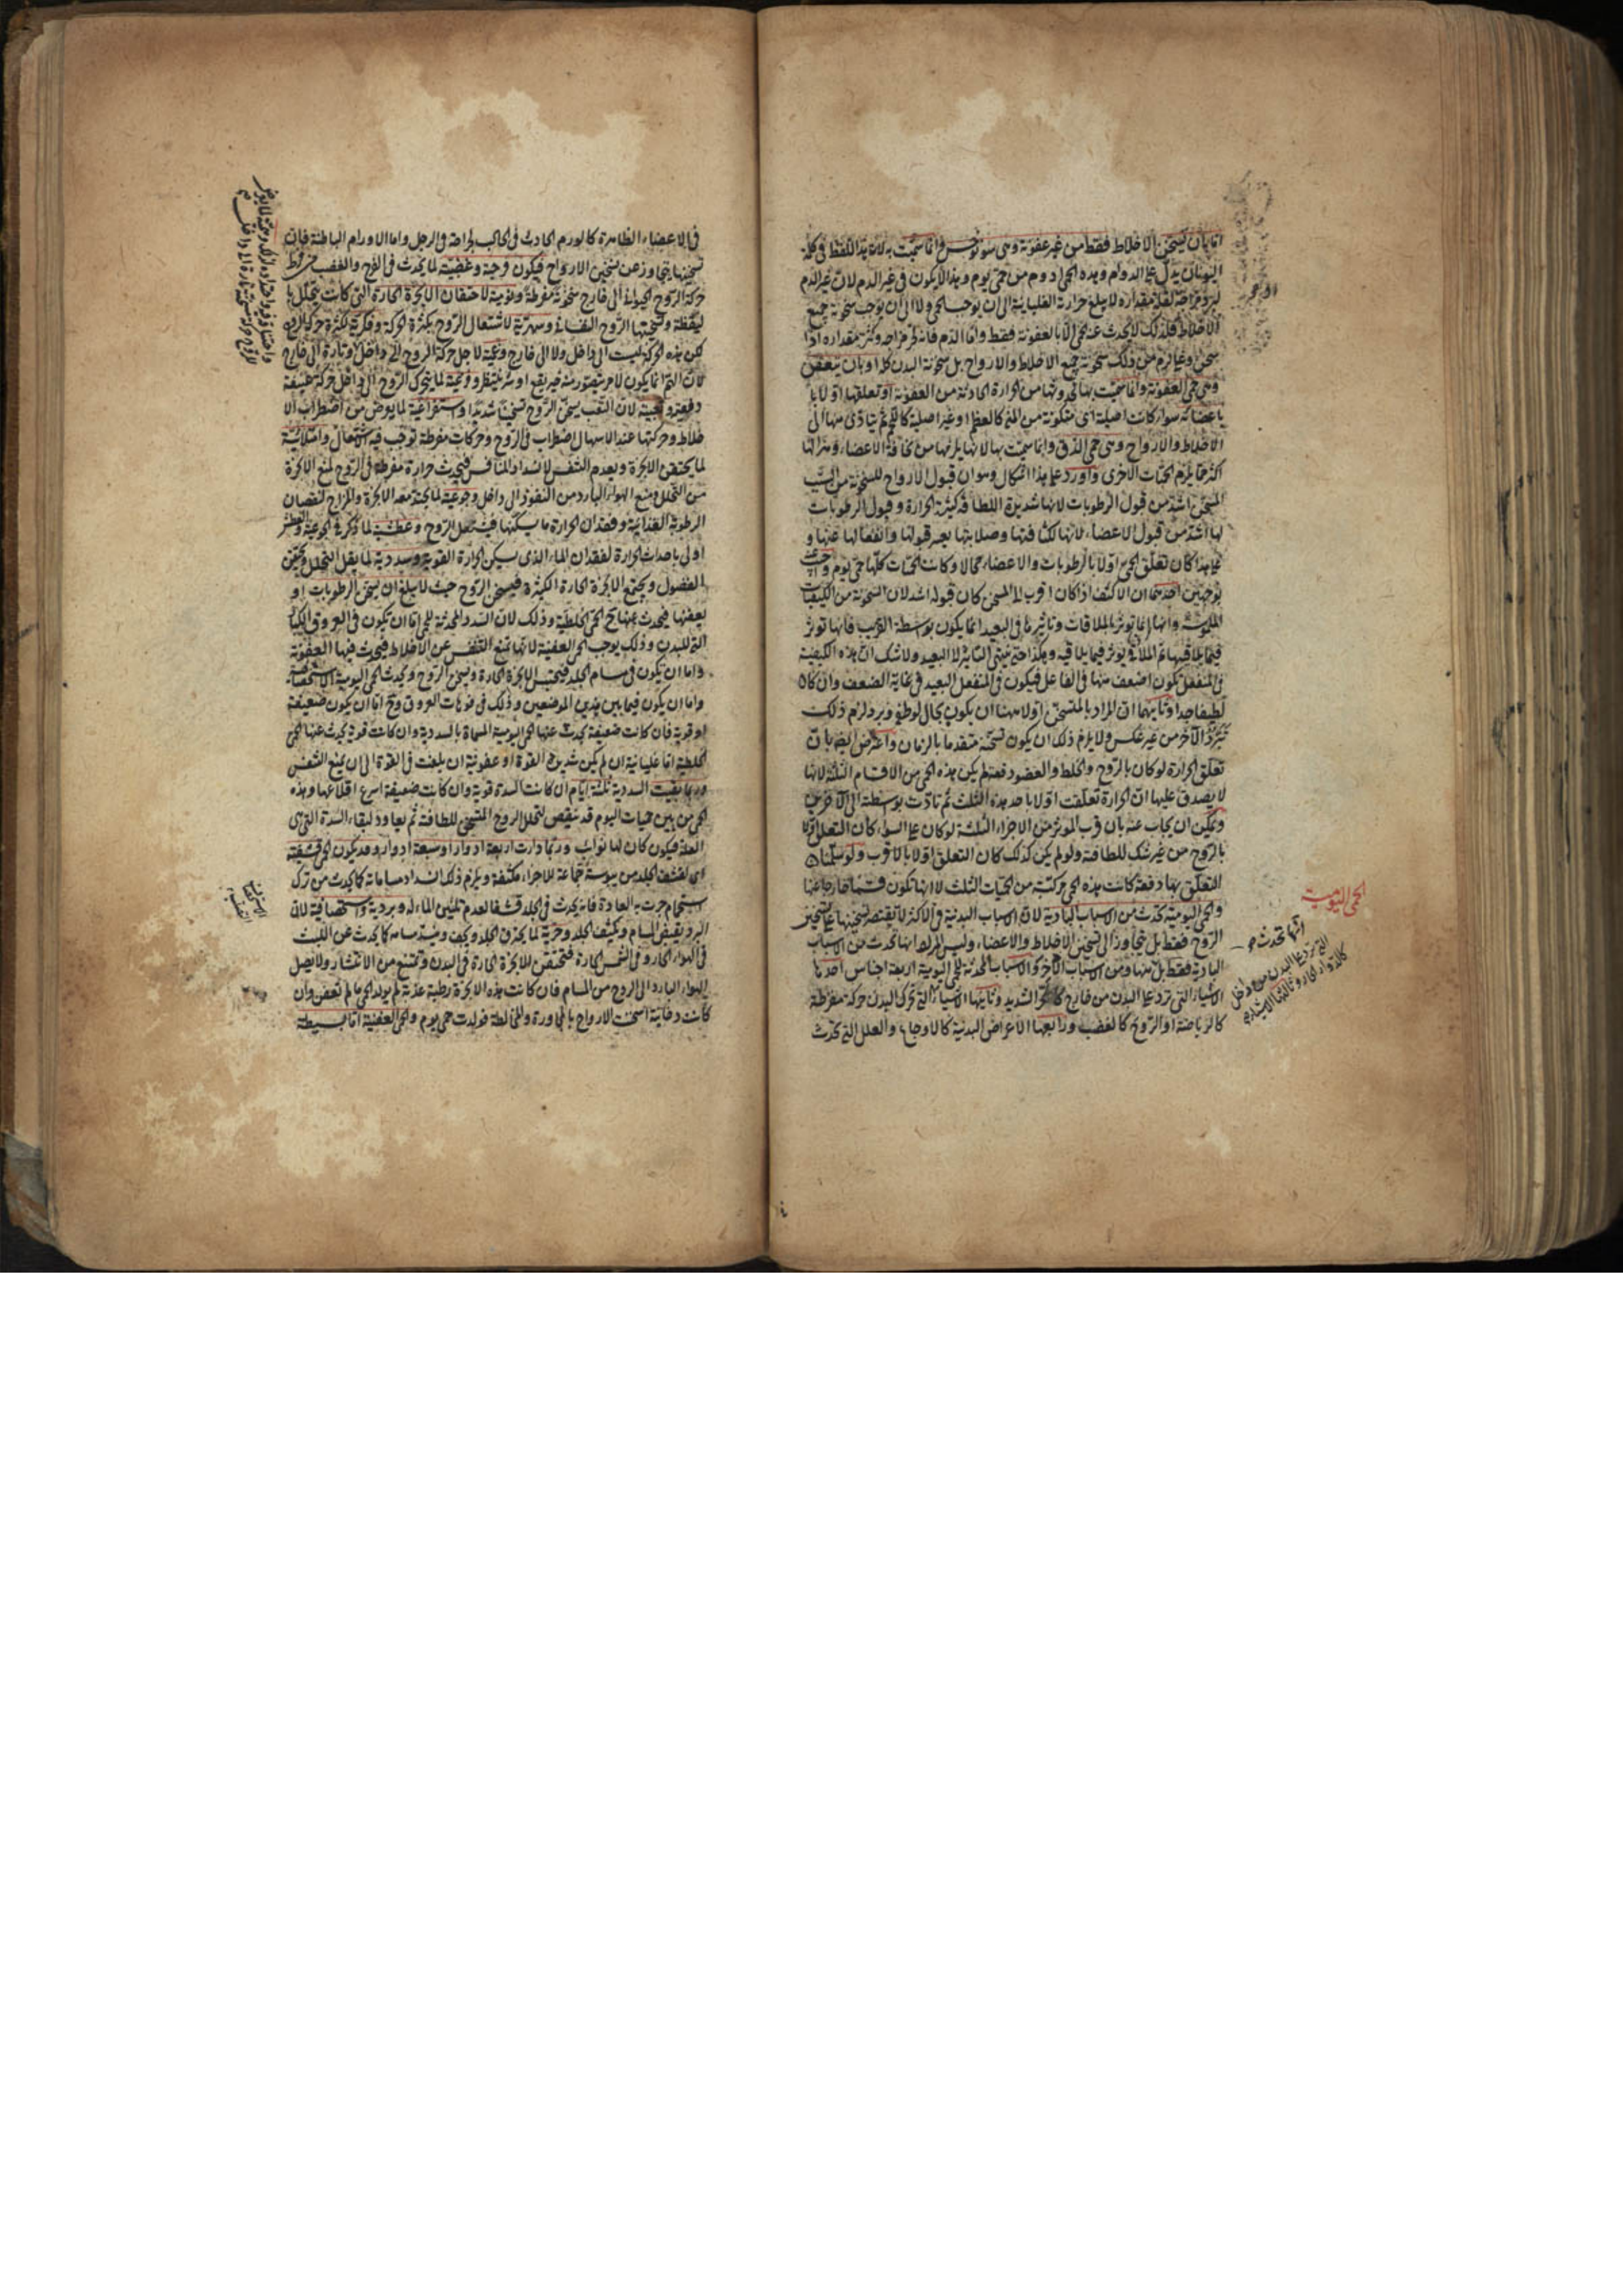 اما بان يسخن الاخلاط فقط من غير عفونة وهى سونوخس وانما سميت به لان هذا اللفظ فى كلمة
اليونان يدل على الدوام وهذه الحمى ادوم من حمى يوم وهذا لا يكون فى غير الدم لان غير الدم
لبرد مزاجه لقلة مقداره لا يبلغ حرارة الغليانية الى ان يوجب الحمى ولا الى ان يوجب سخونة جميع
الاخلاط فلذلك لا يحدث عنه حمى الا بالعفونة فقط واما الدم فانه لحر مزاجه وكثرة مقداره اذا
سخن وغلا لزم من ذلك سخونة جميع الاخلاط والارواح بل سخونة البدن كله او بان يتعفن
وهى حمى العفونة وانما سميت بها لحدوثها من الحرارة الحادثة من العفونة او تعلقها اولا با
باعضائه سواء كانت اصلية اى متكونة من المنى كالعظم او غير اصلية كاللحم ثم يتادى منها الى
الاخلاط والارواح وهى حمى الدق وانما سميت بها لانها يلزمها من نحافة الاعضاء وهزالها
اكثر مما يلزم الحميات الاخرى واورد على هذا اشكال وهو ان قبول الارواح للسخونة من السبب
المسخن اشد من قبول الرطوبات لانها شديدة اللطافة كثيرة الحرارة وقبول الرطوبات
لها اشد من قبول الاعضاء لانها لكثافتها وصلابتها يعسر قبولها وانفعالها عنها و
على هذا كان تعلق الحمى اولا بالرطوبات والاعضاء محالا وكانت الحميات كلها حمى يوم واجيب عنه
بوجهين احدهما ان الاكثف اذا كان اقرب الى المسخن كان قبوله اشد لان السخونة من الكيفيات
الملموسة وانها انما توثر بالملاقات وتاثيرها فى البعيد انما يكون بواسطة القريب فانها توثر
فيما يلاقيها ثم الملاقى يوثر فيما يلاقيه وهكذا حتى ينتهى التاثير الى البعيد ولا شك ان هذه الكيفية
فى المنفعل يكون اضعف منها فى الفاعل فيكون فى المنفعل البعيد فى غاية الضعف وان كان
لطيفا جدا وثانيهما ان المراد بالمتسخن اولا ههنا ان يكون بحال لو طفئ وبرد لزم ذلك
تبرد الآخر من غير عكس ولا يلزم ذلك ان يكون تسخنه متقدما بالزمان واعترض ايضا بان
تعلق الحرارة لو كان بالروح والخلط والعضو دفعة لم يكن هذه الحمى من الاقسام الثلثة لانها
لا يصدق عليها ان الحرارة تعلقت اولا باحد هذه الثلث ثم تادت بواسطته الى الآخرين
ويمكن ان يجاب عنه بان قرب الموثر من الاجزاء الثلثة لو كان على السواء كان التعلق اولا
بالروح من غير شك للطافته ولو لم يكن كذلك كان التعلق اولا بالاقرب ولو سلمنا ان
التعلق بها دفعة كانت هذه الحمى مركبة من الحميات الثلث لا انها تكون قسما خارجا عنها
والحمى اليومية تحدث من الاسباب البادية لان الاسباب البدنية فى الاكثر لا يقتصر تسخينها على تسخين
الروح فقط بل يتجاوز الى تسخين الاخلاط والاعضاء وليس المراد انها تحدث من الاسباب
البادية فقط بل منها ومن الاسباب الاخر والاسباب المحدثة للحمى اليومية اربعة اجناس احدها
الاشياء التى ترد على البدن من خارج كالحر الشديد وثانيها الاشياء التى تحرك البدن حركة مفرطة
كالرياضة او الروح كالغضب ورابعها الاعراض البدنية كالاوجاع والعلل التى تحدث
الحمى اليومية
انها تحدث
التى ترد على البدن من داخل
كالدواء الحار وثالثها الاشياء
فى الاعضاء الظاهرة كالورم الحادث فى الحالب لجراحة فى الرجل واما الاورام الباطنة فان
تسخينها يتجاوز عن تسخين الارواح فيكون فرحية وغضبية لما يحدث فى الفرح والغضب من فرط
حركة الروح الحيوانى الى خارج سخونة مفرطة ونومية لاحتقان الابخرة الحارة التى كانت يتحلل با
ليقظة وتسخينها الروح النفسانى وسهرية لاشتعال الروح بكثرة الحركة وفكرية لكثرة حركة الروح
لكن هذه الحركة ليست الى داخل ولا الى خارج وهمية لاجل حركة الروح الى داخل وتارة الى خارج
لان الهم انما يكون لامر يتصور منه خير يقع او شر ينتظر وفزعية لما يتحرك الروح الى داخل حركة عنيفة
دفعة وتعبية لان التعب يسخن الروح تسخينا شديدا واستفراغية لما يعرض من اضطراب الا
خلاط وحركتها عند الاسهال اضطراب فى الروح وحركات مفرطة توجب فيه اشتعال وامتلائية
لما يحتقن الابخرة ويعدم التنفس لانسداد المنافس فيحدث حرارة مفرطة فى الروح لمنع الابخرة
من التحلل ومنع الهواء البارد من النفوذ الى داخل وجوعية لما يحتد معه الابخرة والمزاج لنقصان
الرطوبة الغذائية وفقدان الحرارة ما يسكنها فيشتعل الروح وعطشية لما ذكر فى الجوعية والعطش
اولى باحداث الحرارة لفقدان الماء الذى يسكن الحرارة القوية وسددية لما يقل التحلل ويحتقن
الفضول ويجتمع الابخرة الحارة الكثيرة فيسخن الروح حيث لا يبلغ ان يسخن الرطوبات او
يعفنها فيحدث عنها ح الحمى الخلطية وذلك لان السدد المحدثة للحمى اما ان تكون فى العروق الكبا
التى للبدن وذلك يوجب الحمى العفنية لانها تمنع التنفس عن الاخلاط فيحدث فيها العفونة
واما ان تكون فى مسام الجلد فيحتبس الابخرة الحارة ويسخن الروح ويحدث الحمى اليومية الاستحصافية
واما ان يكون فيما بين هذين الموضعين وذلك فى فوهات العروق وح اما ان يكون ضعيفة
او قوية فان كانت ضعيفة يحدث عنها الحمى اليومية المسماة بالسددية وان كانت قوية يحدث عنها الحمى
الخلطية اما غليانية ان لم يكن شديدة القوة او عفونية ان بلغت فى القوة الى ان يمنع التنفس
وربما بقيت السددية ثلثة ايام ان كانت السدة قوية وان كانت ضعيفة اسرع اقلاعها وهذه
الحمى من بين حميات اليوم قد تنقص لتحلل الروح المتسخن للطافته ثم يعاود لبقاء السدة التى هى
العلة فيكون كان لها نوائب وربما دارت اربعة ادوار او سبعة ادوار وقد يكون الحمى قشفية
اى لقشف الجلد من يبوسة جماعة للاجزاء مكثفة ويلزم ذلك انسداد مساماته كما يحدث من ترك
استحمام جرت به العادة فانه يحدث فى الجلد قشفا لعدم تليين الماء له وبردية واستحصافية لان
البرد يقبض المسام ويكثف الجلد وحرية لما يحرق الجلد ويجف وينسد مسامه كما يحدث عن اللبث
فى الهواء الحار وفى الشمس الحارة فتحتقن الابخرة الحارة فى البدن وتمتنع من الانتشار ولا يصل
الهواء البارد الى الروح من المسام فان كانت هذه الابخرة رطبة عذبة لم يولد الحمى ما لم تعفن وان
كانت دخانية اسخنت الارواح بالمجاورة والمخالطة فولدت حمى يوم والحمى العفنية اما بسيطة